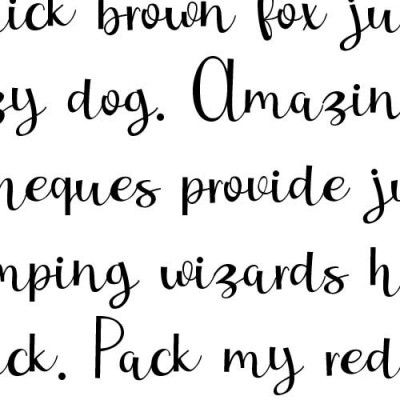 ick brown fox ju
zy dog. Amazin
heques provide ju
mping wizards h
ck. Pack my red